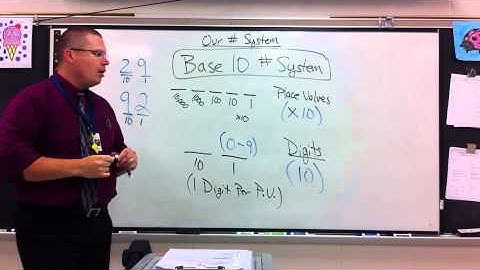 Our # System
Base 10 # System
2 9
10
9 2
10 1
10000 1000 100 10 1
x10
Place Values
(x10)
(0-9)
10 1
(1 Digit Per P.V.)
Digits
(10)